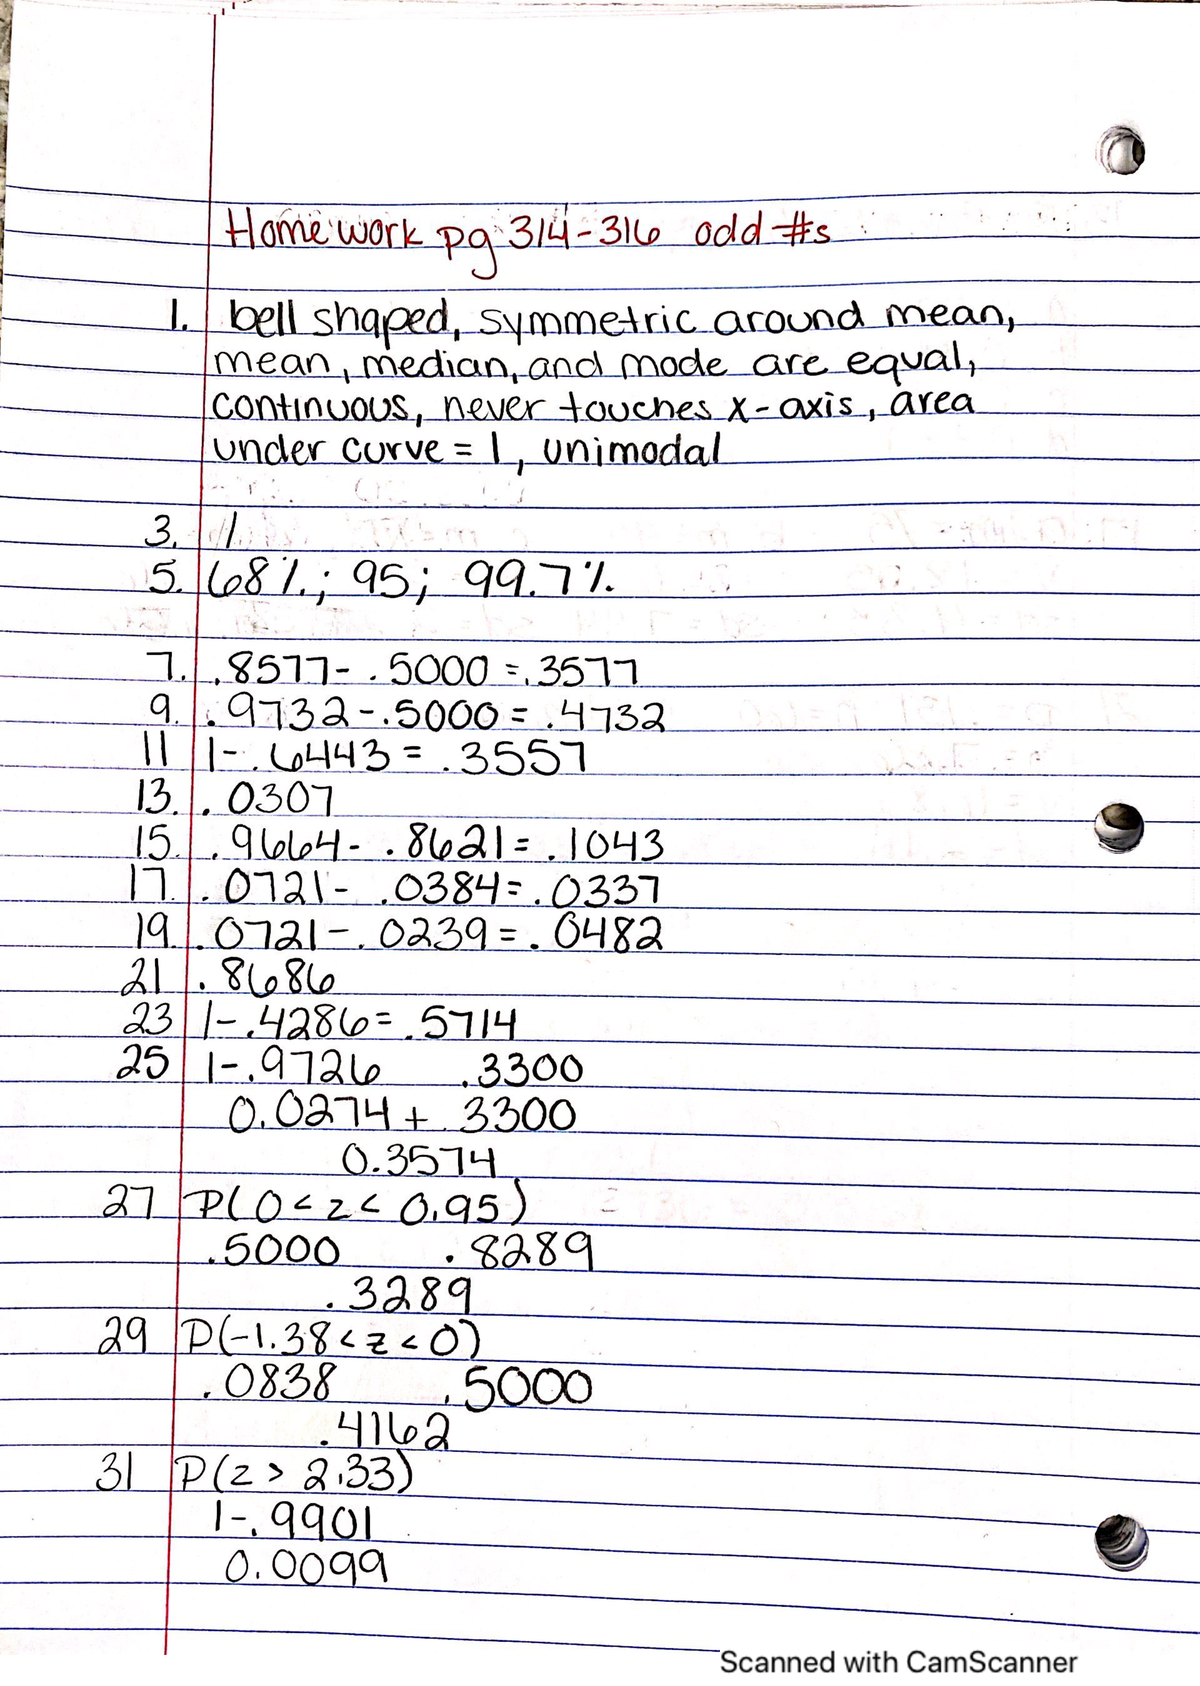 Homework pg 314-316 odd #s
1. bell shaped, symmetric around mean,
mean, median, and mode are equal,
continuous, never touches x-axis, area
under curve = 1, unimodal
3. 1
5. 68%; 95; 99.7%
7. .8577- .5000 = .3577
9. .9732-.5000 = .4732
11 1-.6443 = .3557
13. .0307
15. .9664- .8621= .1043
17. .0721- .0384= .0337
19. .0721-.0239= .0482
21 .8686
23 1-.4286= .5714
25 1-.9726 .3300
0.0274+ .3300
0.3574
27 P(0<z< 0.95)
.5000 .8289
.3289
29 P(-1.38<z<0)
.0838 .5000
.4162
31 P(z> 2.33)
1-.9901
0.0099
Scanned with CamScanner